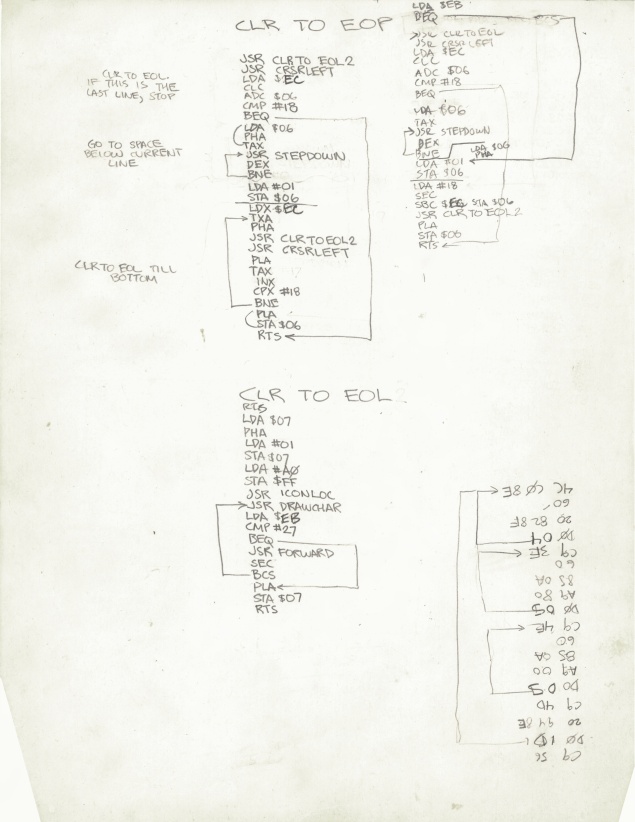 CLR TO EOP
CLR TO EOL.
IF THIS IS THE
LAST LINE, STOP
GO TO SPACE
BELOW CURRENT
LINE
CLR TO EOL TILL
BOTTOM
JSR CLR TO EOL 2
JSR CRSRLEFT
LDA $EC
CLC
ADC $06
CMP #18
BEQ
LDA $06
PHA
TAX
JSR STEPDOWN
DEX
BNE
LDA #01
STA $06
LDX $EC
TXA
PHA
JSR CLR TO EOL2
JSR CRSRLEFT
PLA
TAX
INX
CPX #18
BNE
PLA
STA $06
RTS
LDA $EB
BEQ
JSR CLR TO EOL
JSR CRSR LEFT
LDA $EC
CLC
ADC $06
CMP #18
BEQ
LDA $06
TAX
JSR STEPDOWN
DEX
BNE
LDA $06
PHA
LDA #01
STA $06
LDA #18
SEC
SBC $EC STA $06
JSR CLR TO EOL2
PLA
STA $06
RTS
CLR TO EOL
RTS
LDA $07
PHA
LDA #01
STA $07
LDA #AØ
STA $FF
JSR ICONLOC
JSR DRAWCHAR
LDA $EB
CMP #27
BEQ
JSR FORWARD
SEC
BCS
PLA
STA $07
RTS
C9 56
DØ 1D
20 94 8E
C9 4D
DO 05
A9 00
85 0A
60
C9 4E
DØ 05
A9 80
85 0A
60
C9 3E
DØ 04
20 82 8F
60
4C CØ 8E